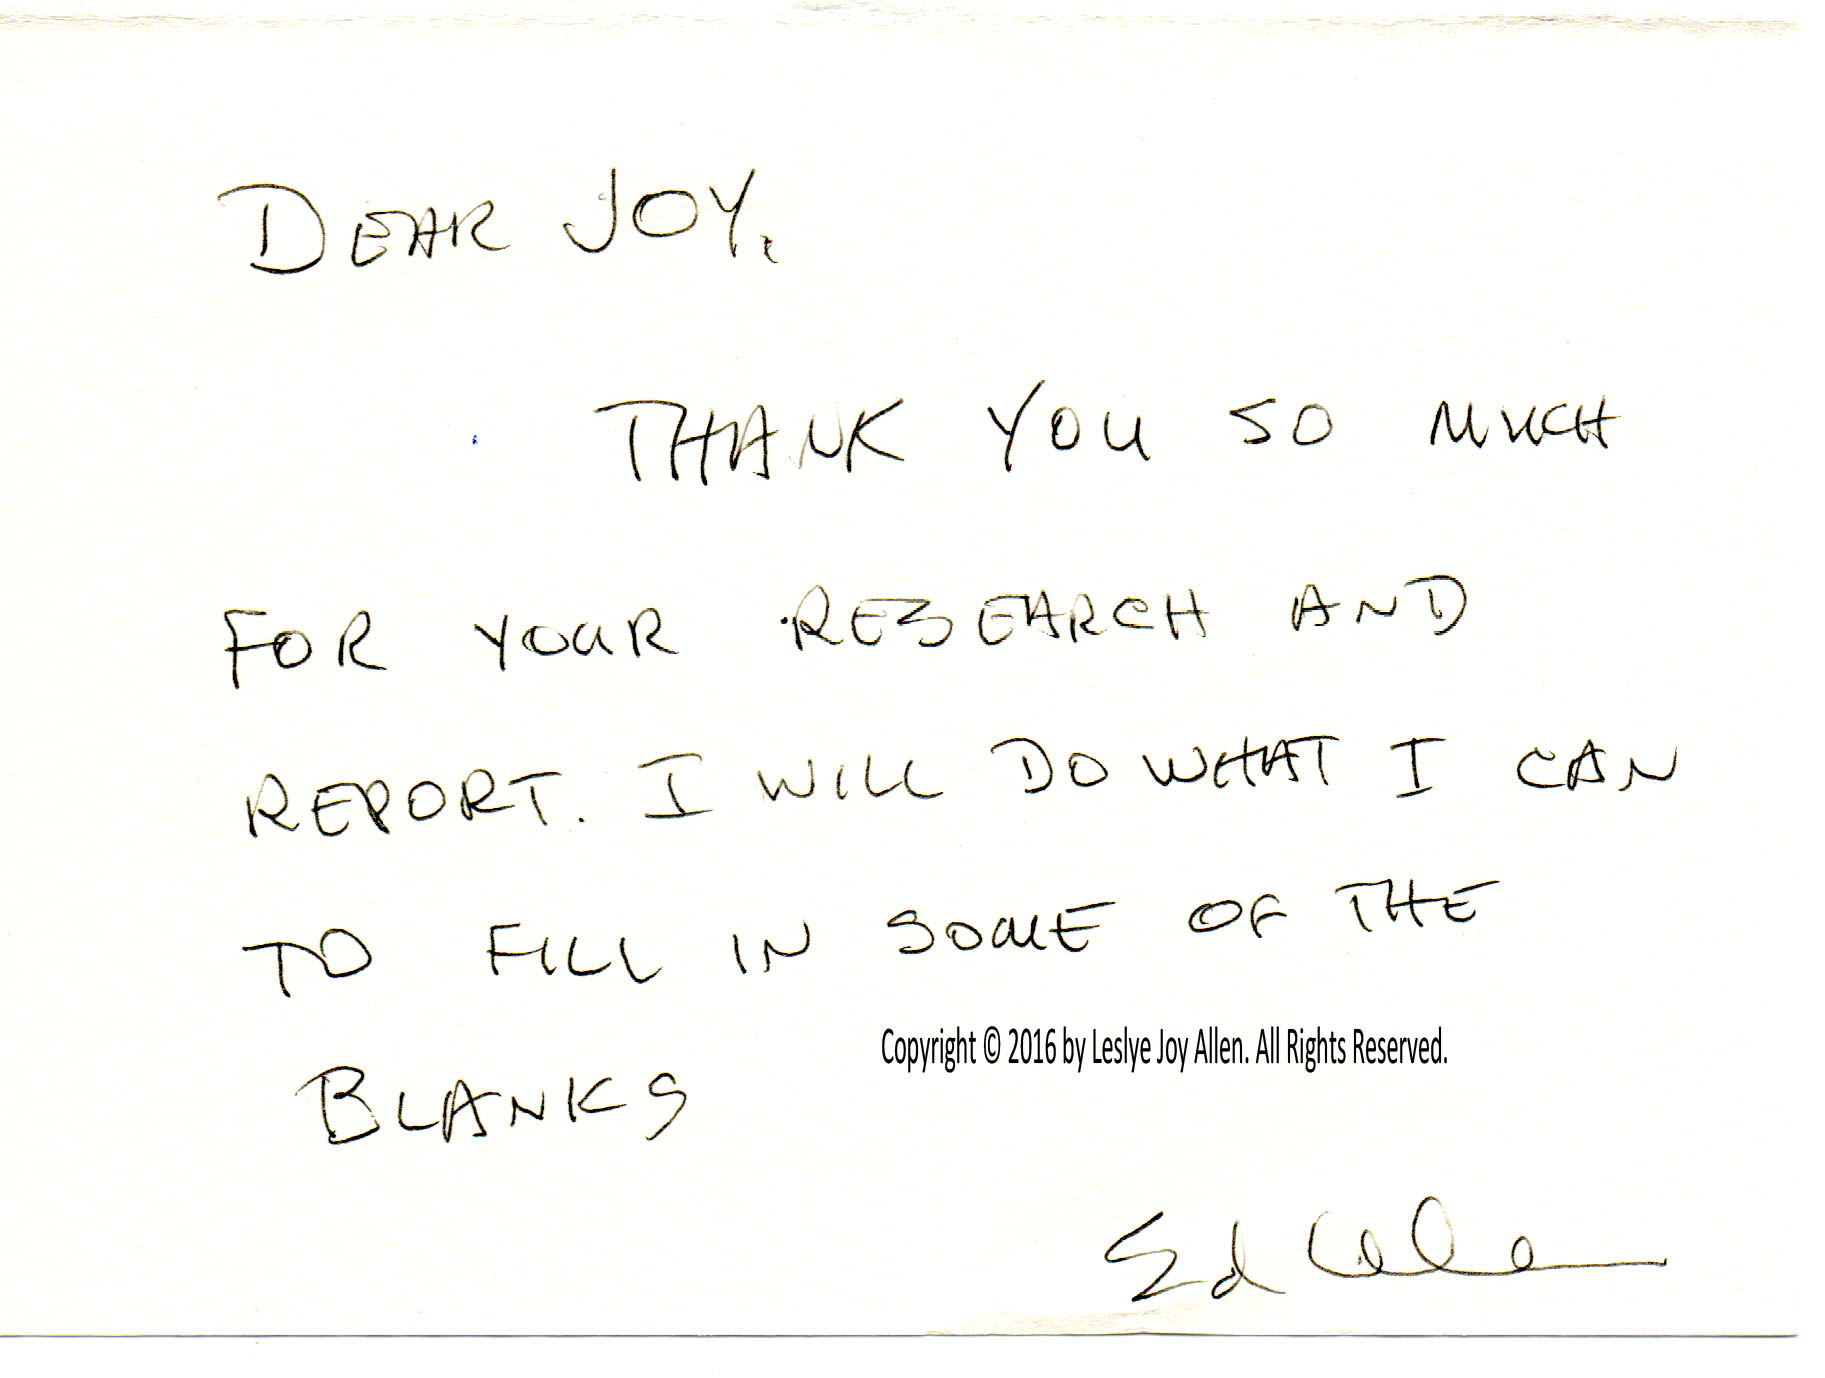 DEAR JOY,
THANK YOU SO MUCH
FOR YOUR RESEARCH AND
REPORT. I WILL DO WHAT I CAN
TO FILL IN SOME OF THE
BLANKS
Copyright © 2016 by Leslye Joy Allen. All Rights Reserved.
Ed